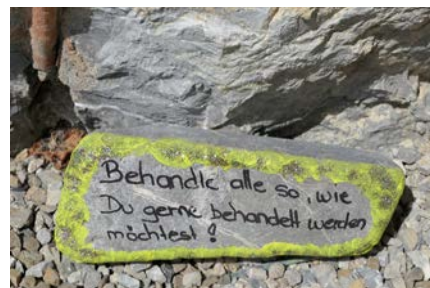 Behandle alle so, wie
Du gerne behandelt werden
möchtest !